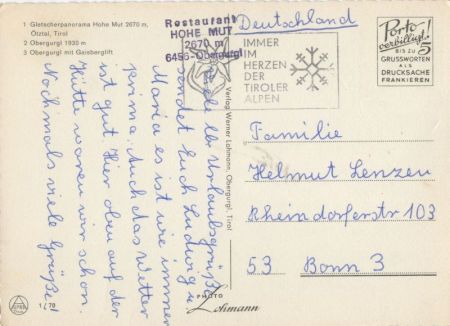 1 Gletscherpanorama Hohe Mut 2670 m,
Ötztal, Tirol
2 Obergurgl 1930 m
3 Obergurgl mit Gaisberglift
Restaurant
HOHE MUT
2670 m
6456-Obergurgl
IMMER
IM
HERZEN
DER
TIROLER
ALPEN
Deutschland
Porto-
verbilligt!
BIS ZU 5
GRUSSWORTEN
ALS
DRUCKSACHE
FRANKIEREN
Viele lb. Urlaubsgrüße
sendet Euch Ludwig u.
Maria es ist wie immer
prima. Auch das Wetter
ist gut. Hier oben auf der
Hütte waren wir schon.
Nochmals viele Grüße
Verlag Werner Lohmann, Obergurgl, Tirol
Familie
Helmut Lenzen
Rheindorferstr 103
53 Bonn 3
PHOTO
Lohmann
1/70